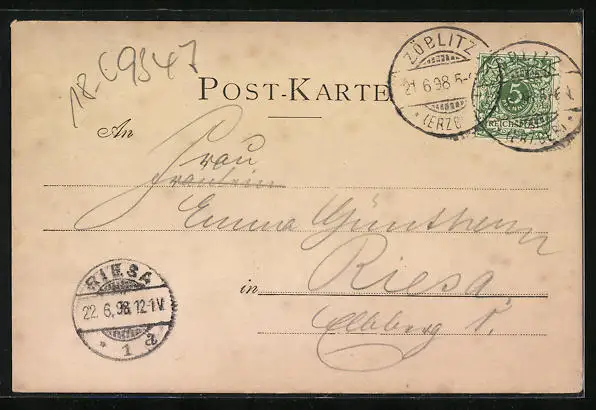 18-69347
POST-KARTE
ZÖBLITZ
21.6.98
(ERZG
5
REICHSPOST
An
Frau
Fräulein
Emma Günther
in Riesa
Elbberg
RIESA
22.6.98.12-1V.
* 1 a